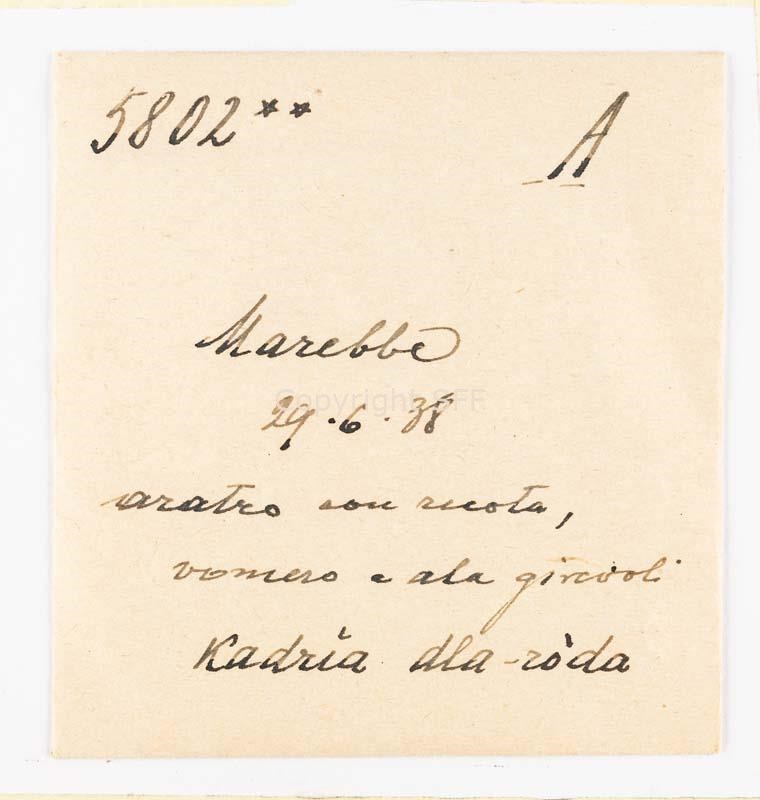 5802** A
Marebbe
Copyright SFF
29.6.38
aratro con ruota,
vomero e ala girevoli
Kadrìa dla ròda